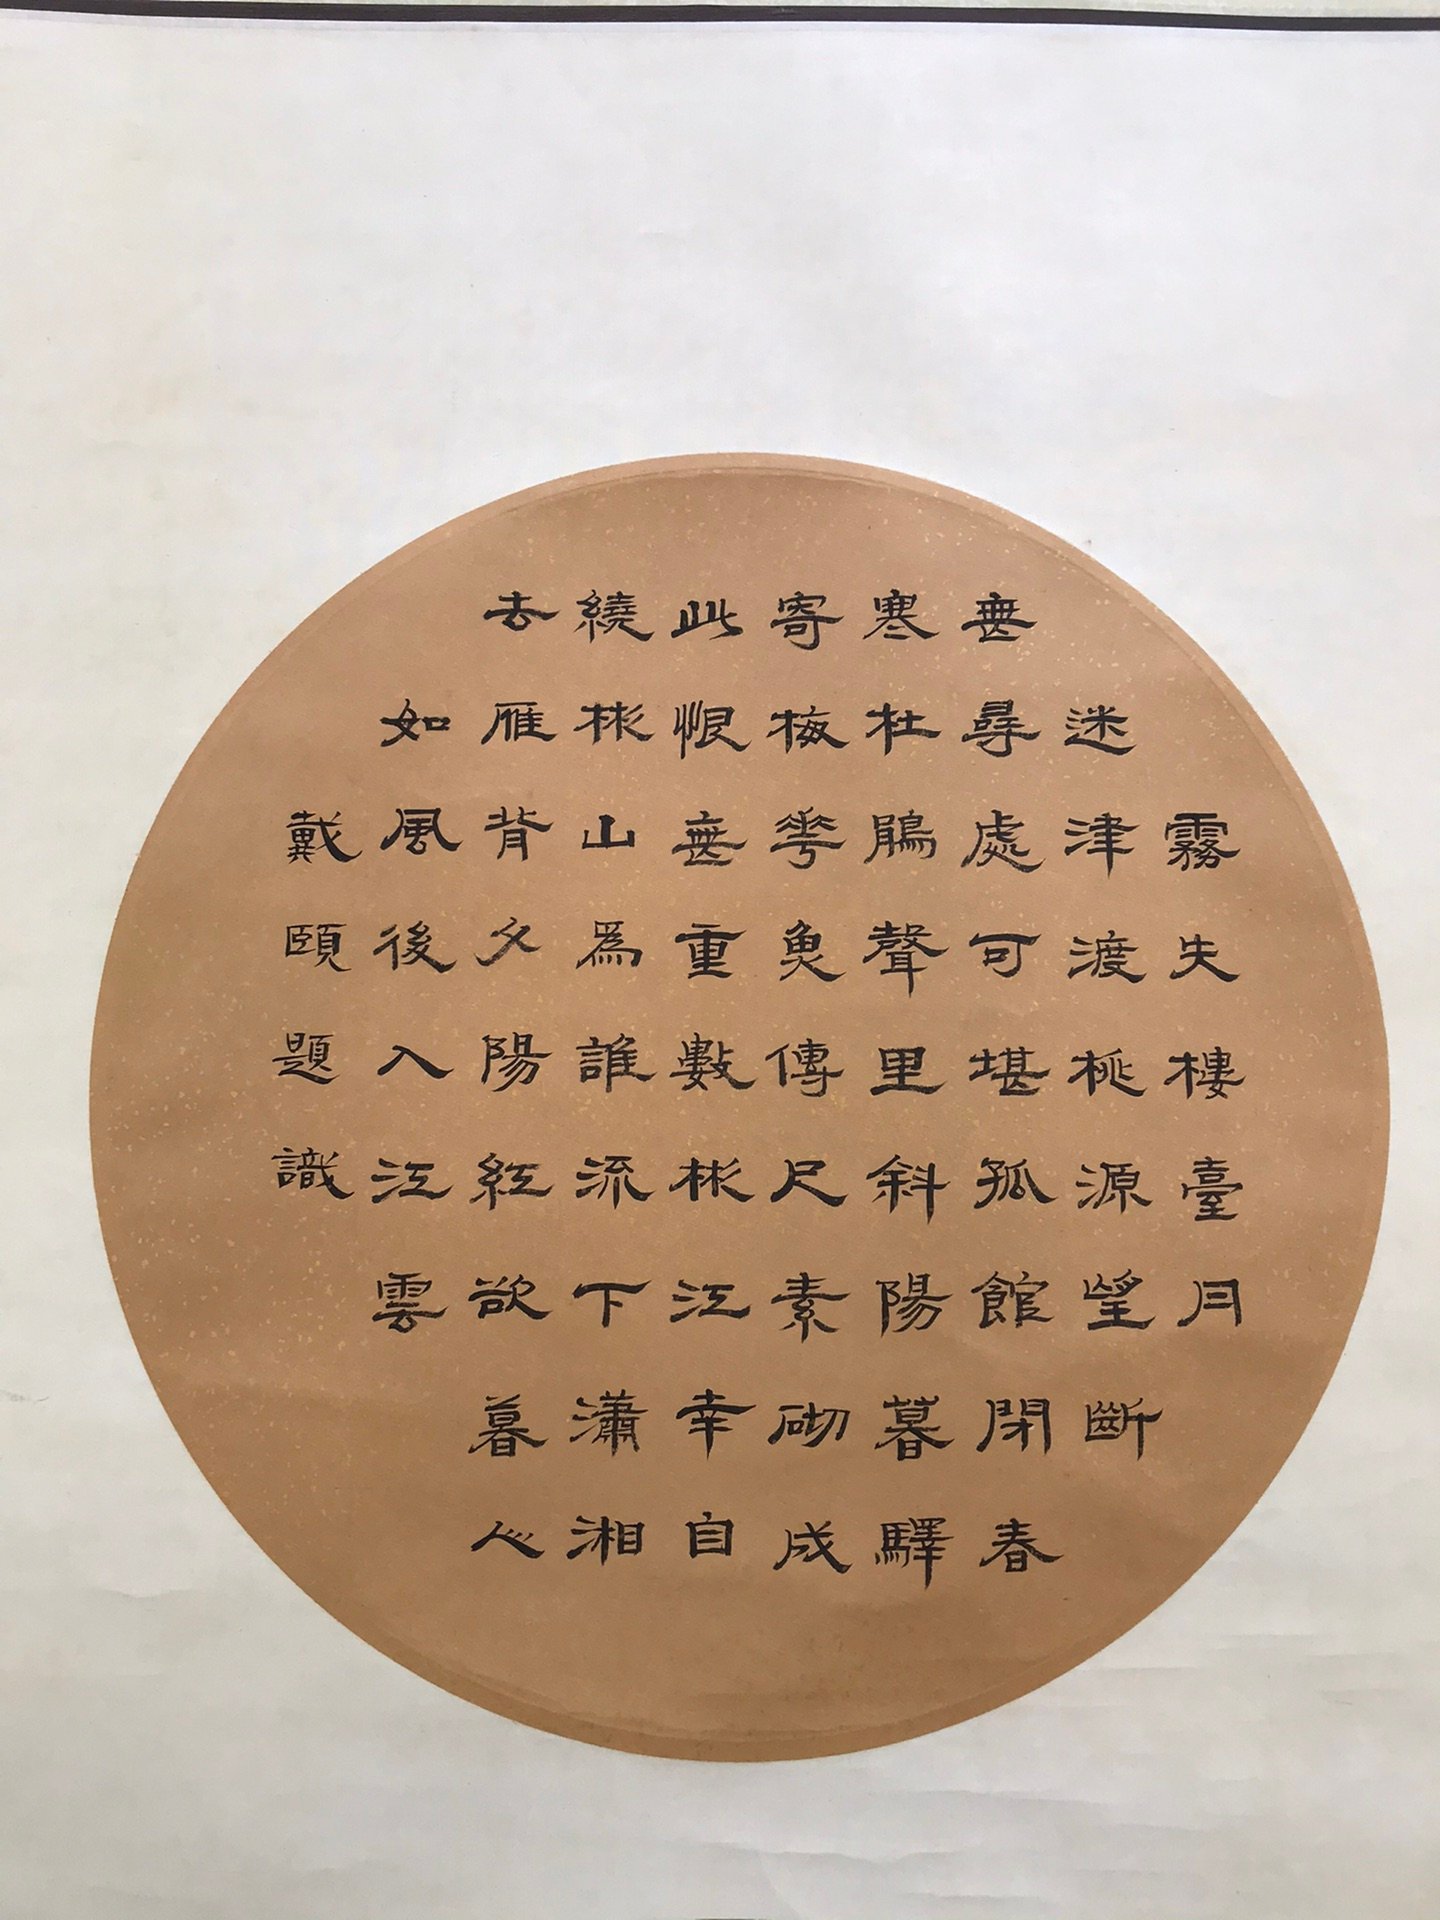 霧失樓臺月
迷津渡桃源望斷
無尋處可堪孤館閉春
寒杜鵑聲里斜陽暮驛
寄梅華魚傳尺素砌成
此恨無重數彬江幸自
繞彬山爲誰流下瀟湘
去雁背夕陽紅欲暮心
如風後入江雲
戴頤題識